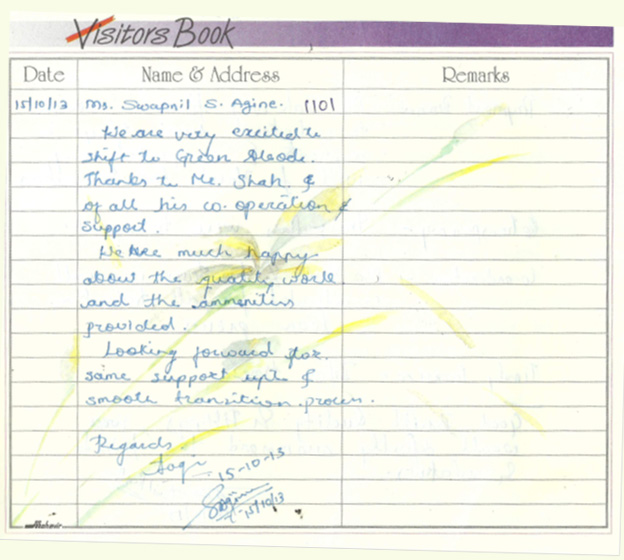 Visitors Book
Date Name & Address Remarks
15/10/13 Ms. Swapnil S. Agine. 1101
We are very excited to
shift to Green Aleode.
Thanks to Mr. Shah. &
of all his co. operation &
support.
We Are much happy
about the quality work
and the ammenitins
provided.
Looking forward for
same support upto &
smoote transition process.
Regards
15-10-13
15/10/13